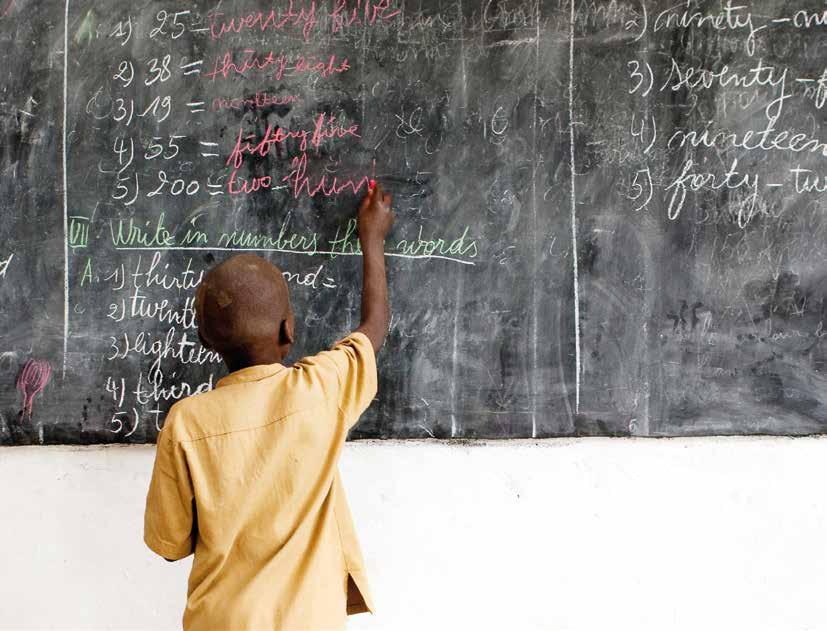 A. 1) 25 = twenty five
2) 38 = thirty eight
3) 19 =
4) 55 = fifty five
5) 200 = two-hun
VII Write in numbers the words
A. 1) thirty nd =
2) twent
3) eighteen
4) third
5) t
2) ninety-ni
3) seventy-f
4) nineteen
5) forty-tw